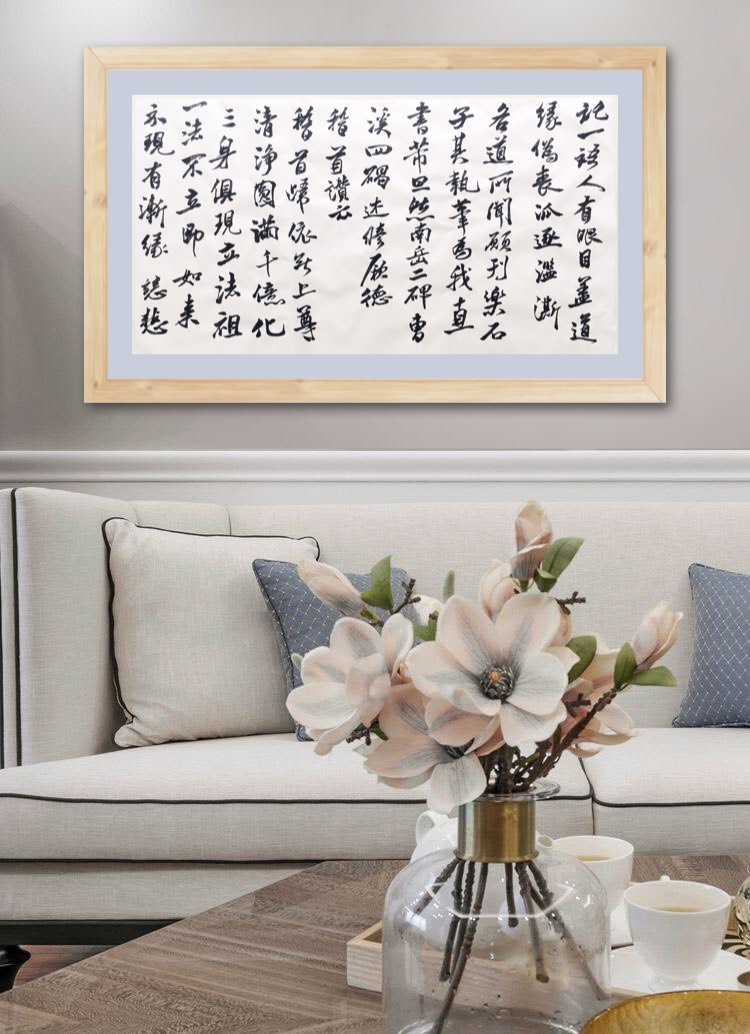 記一語人有眼目蓋道
緣僞喪派逐濫澌
各道所聞願刊樂石
子其執筆為我直
書芾曰然南岳二碑曹
溪四碣述修厥德
稽首讚云
稽首歸依無上尊
清淨圓滿千億化
三身俱現立法祖
一法不立即如来
示現有漸緣慈悲